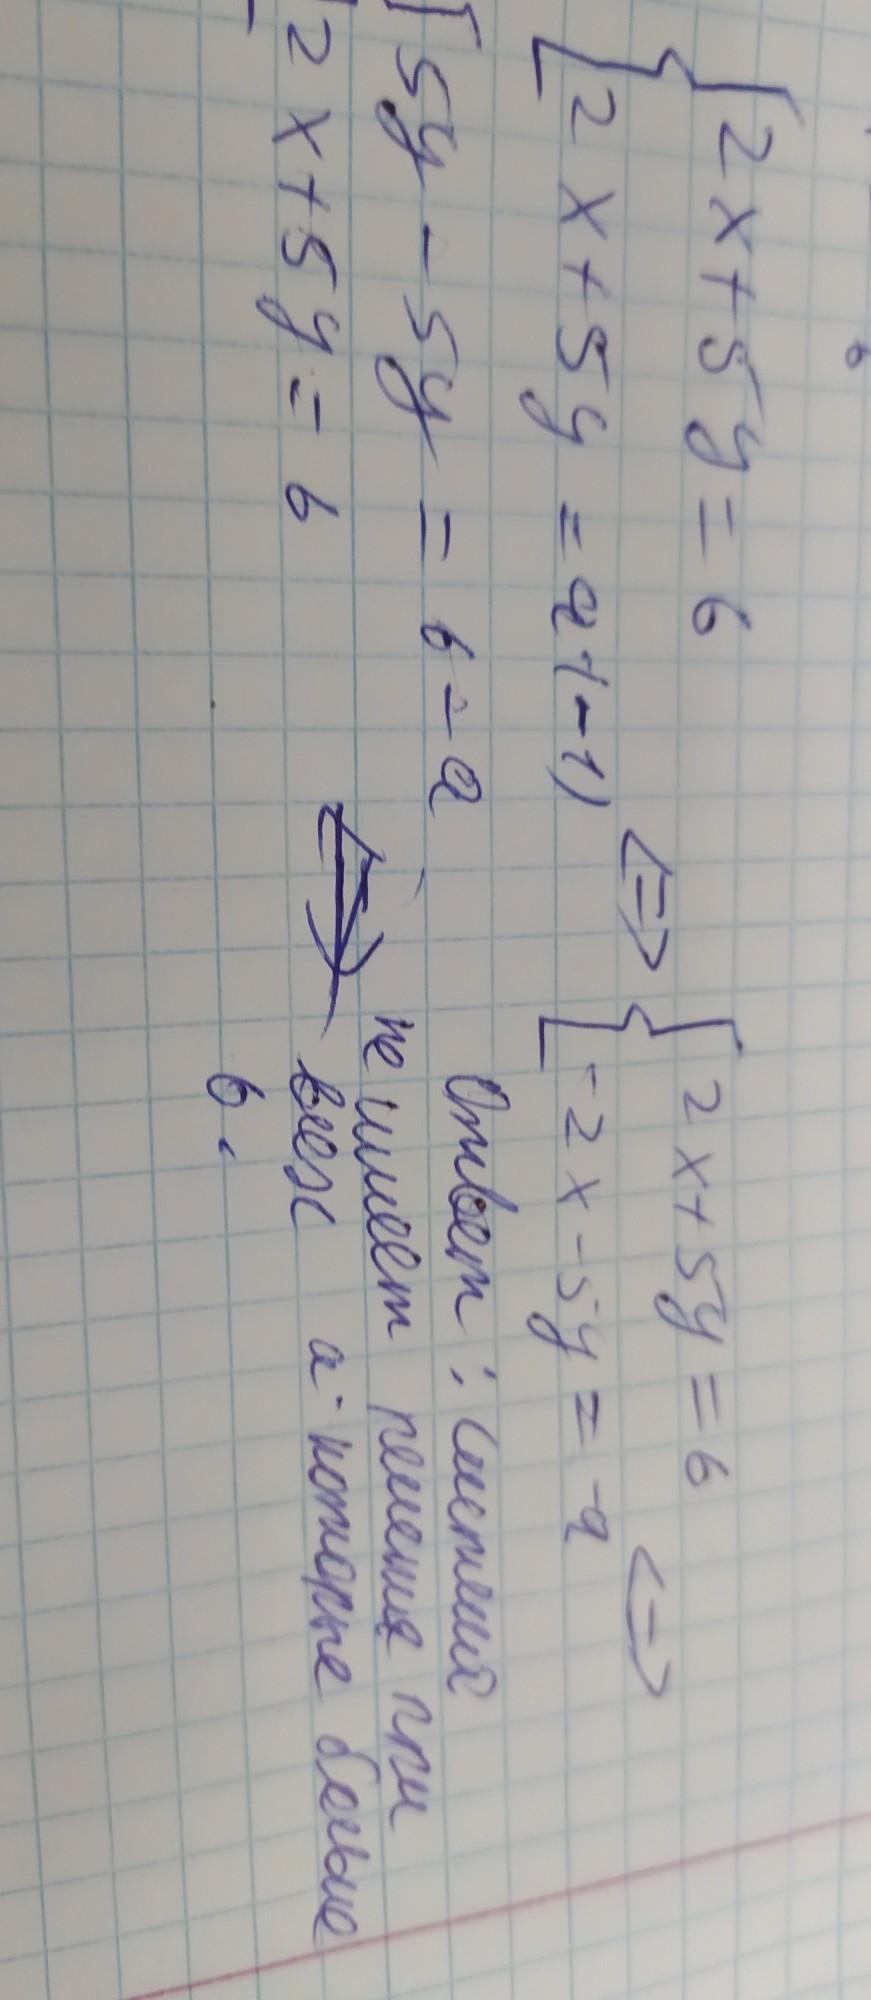 { 2x+5y=6
2x+5y=a |(-1)
<=>
{ 2x+5y=6
-2x-5y=-a
<=>
{ 5y-5y=6-a
2x+5y=6
Ответ: система
не имеет решения при
всех а которые больше
6.